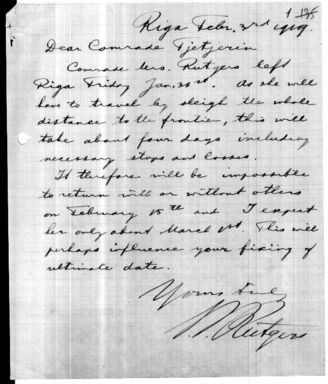 1
Riga Febr. 3rd 1919.
Dear Comrade Tjetjerin
Comrade Mrs. Rutgers left
Riga Friday Jan. 31st. As she will
have to travel by sleigh the whole
distance to the frontier, this will
take about four days including
necessary stops and losses.
It therefore will be impossible
to return with or without others
on February 15th and I expect
her only about March 1st. This will
perhaps influence your fixing of
ultimate date.
Yours truly
Rutgers